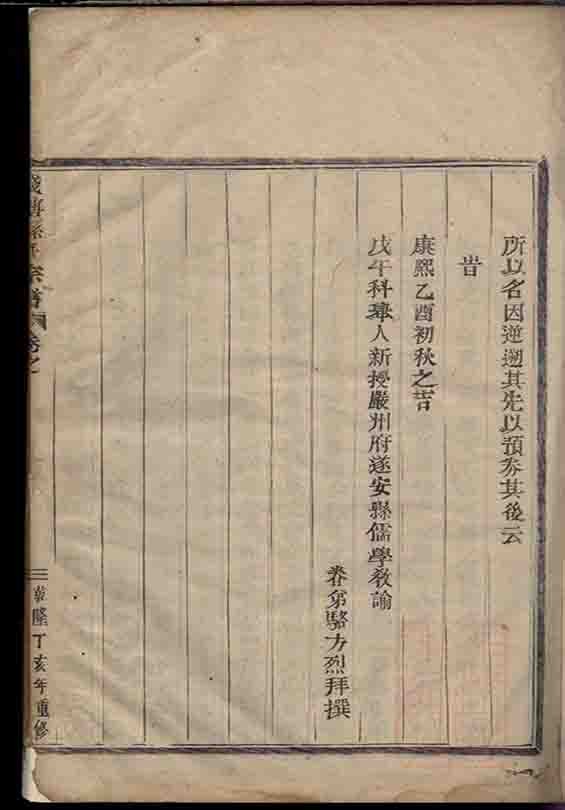 所以名因逆遡其先以預券其後云
旹
康熙乙酉初秋之吉
戊午科舉人新授嚴州府遂安縣儒學教諭
眷弟駱方烈拜撰
宗譜
卷之
乾隆丁亥年重修